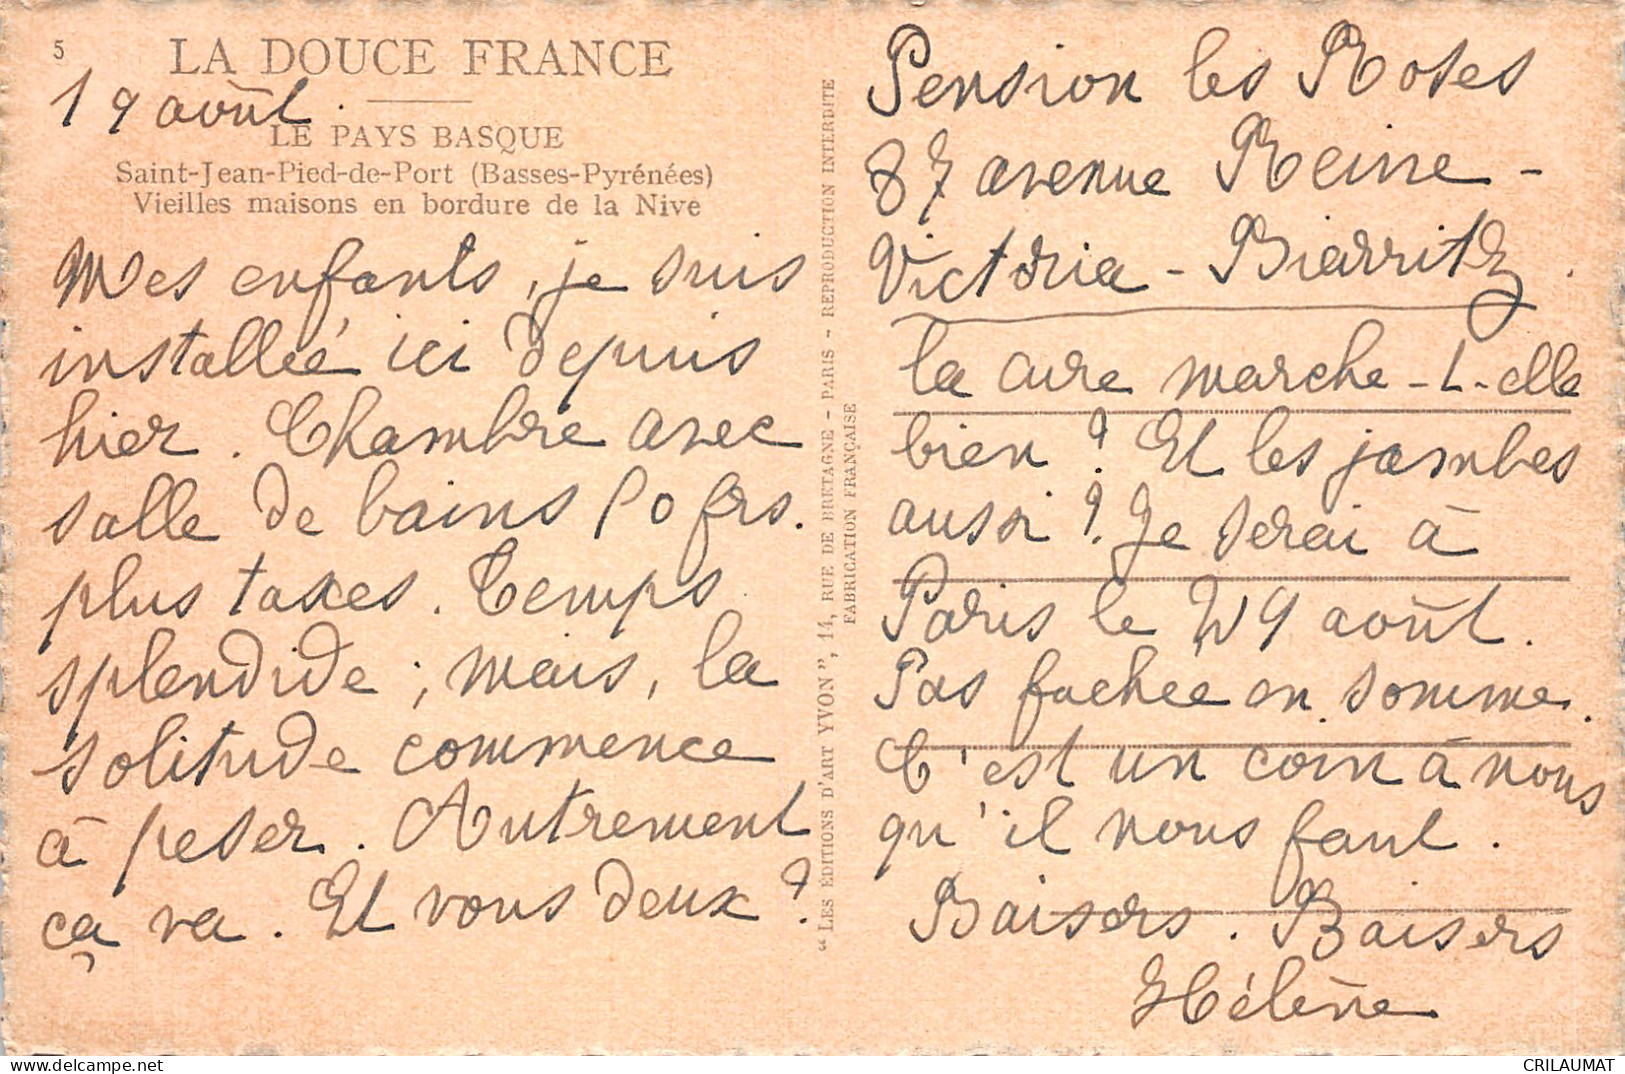 5
LA DOUCE FRANCE
19 août.
LE PAYS BASQUE
Saint-Jean-Pied-de-Port (Basses-Pyrénées)
Vieilles maisons en bordure de la Nive
Mes enfants, je suis
installée ici depuis
hier. Chambre avec
salle de bains 80 frs.
plus taxes. Temps
splendide ; mais, la
solitude commence
à peser. Autrement
ça va. Et vous deux ?
"LES ÉDITIONS D'ART YVON", 14, RUE DE BRETAGNE - PARIS - REPRODUCTION INTERDITE
FABRICATION FRANÇAISE
Pension les Roses
87 avenue Reine-
Victoria - Biarritz.
la cure marche-t-elle
bien ? Et les jambes
aussi ? Je serai à
Paris le 29 août.
Pas fachée en somme.
C'est un coin à nous
qu'il nous faut.
Baisers. Baisers
Hélène
delcampe.net
CRILAUMAT